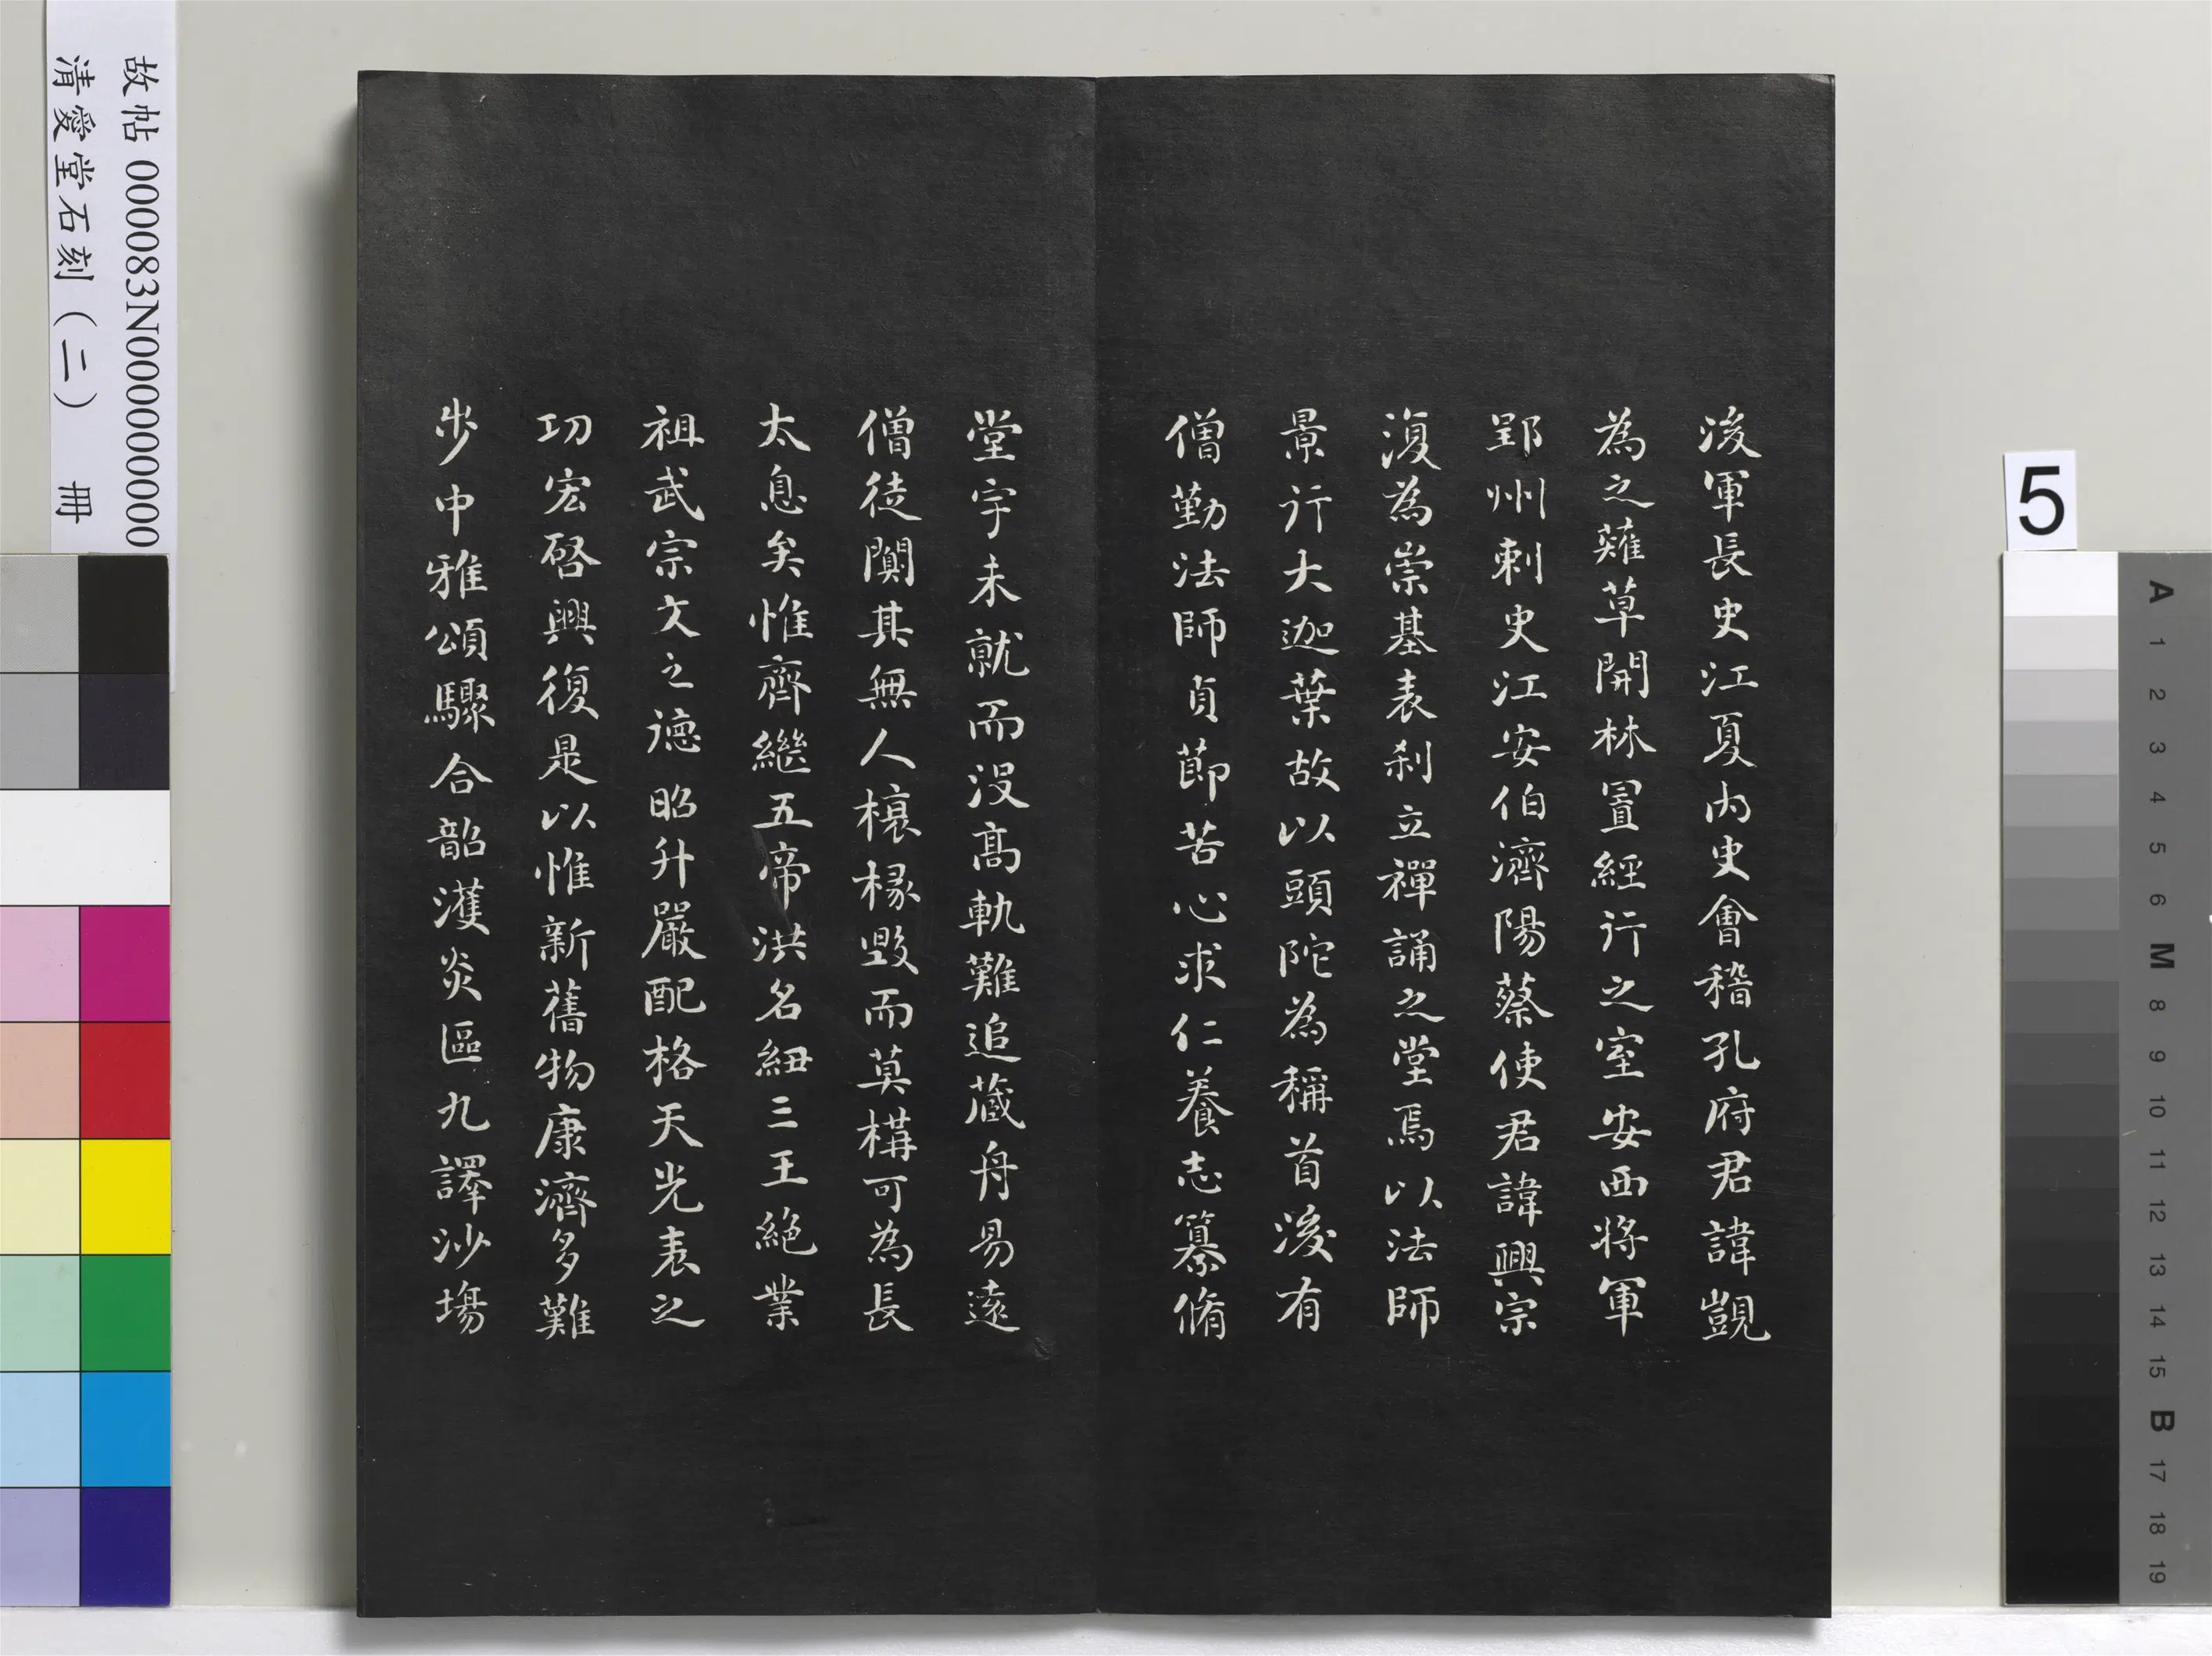 後軍長史江夏内史會稽孔府君諱覬
為之薙草開林置經行之室安西將軍
郢州刺史江安伯濟陽蔡使君諱興宗
復為崇基表刹立禪誦之堂焉以法師
景行大迦葉故以頭陀為稱首後有
僧勤法師貞節苦心求仁養志纂脩
堂宇未就而没髙軌難追藏舟易遠
僧徒闃其無人榱椽毀而莫構可為長
太息矣惟齊繼五帝洪名紐三王絶業
祖武宗文之德昭升嚴配格天光表之
功宏啓興復是以惟新舊物康濟多難
步中雅頌驟合韶濩炎區九譯沙場
故帖 000083N000000000
清愛堂石刻(二) 冊
5
A
1
2
3
4
5
6
M
8
9
10
11
12
13
14
15
B
17
18
19